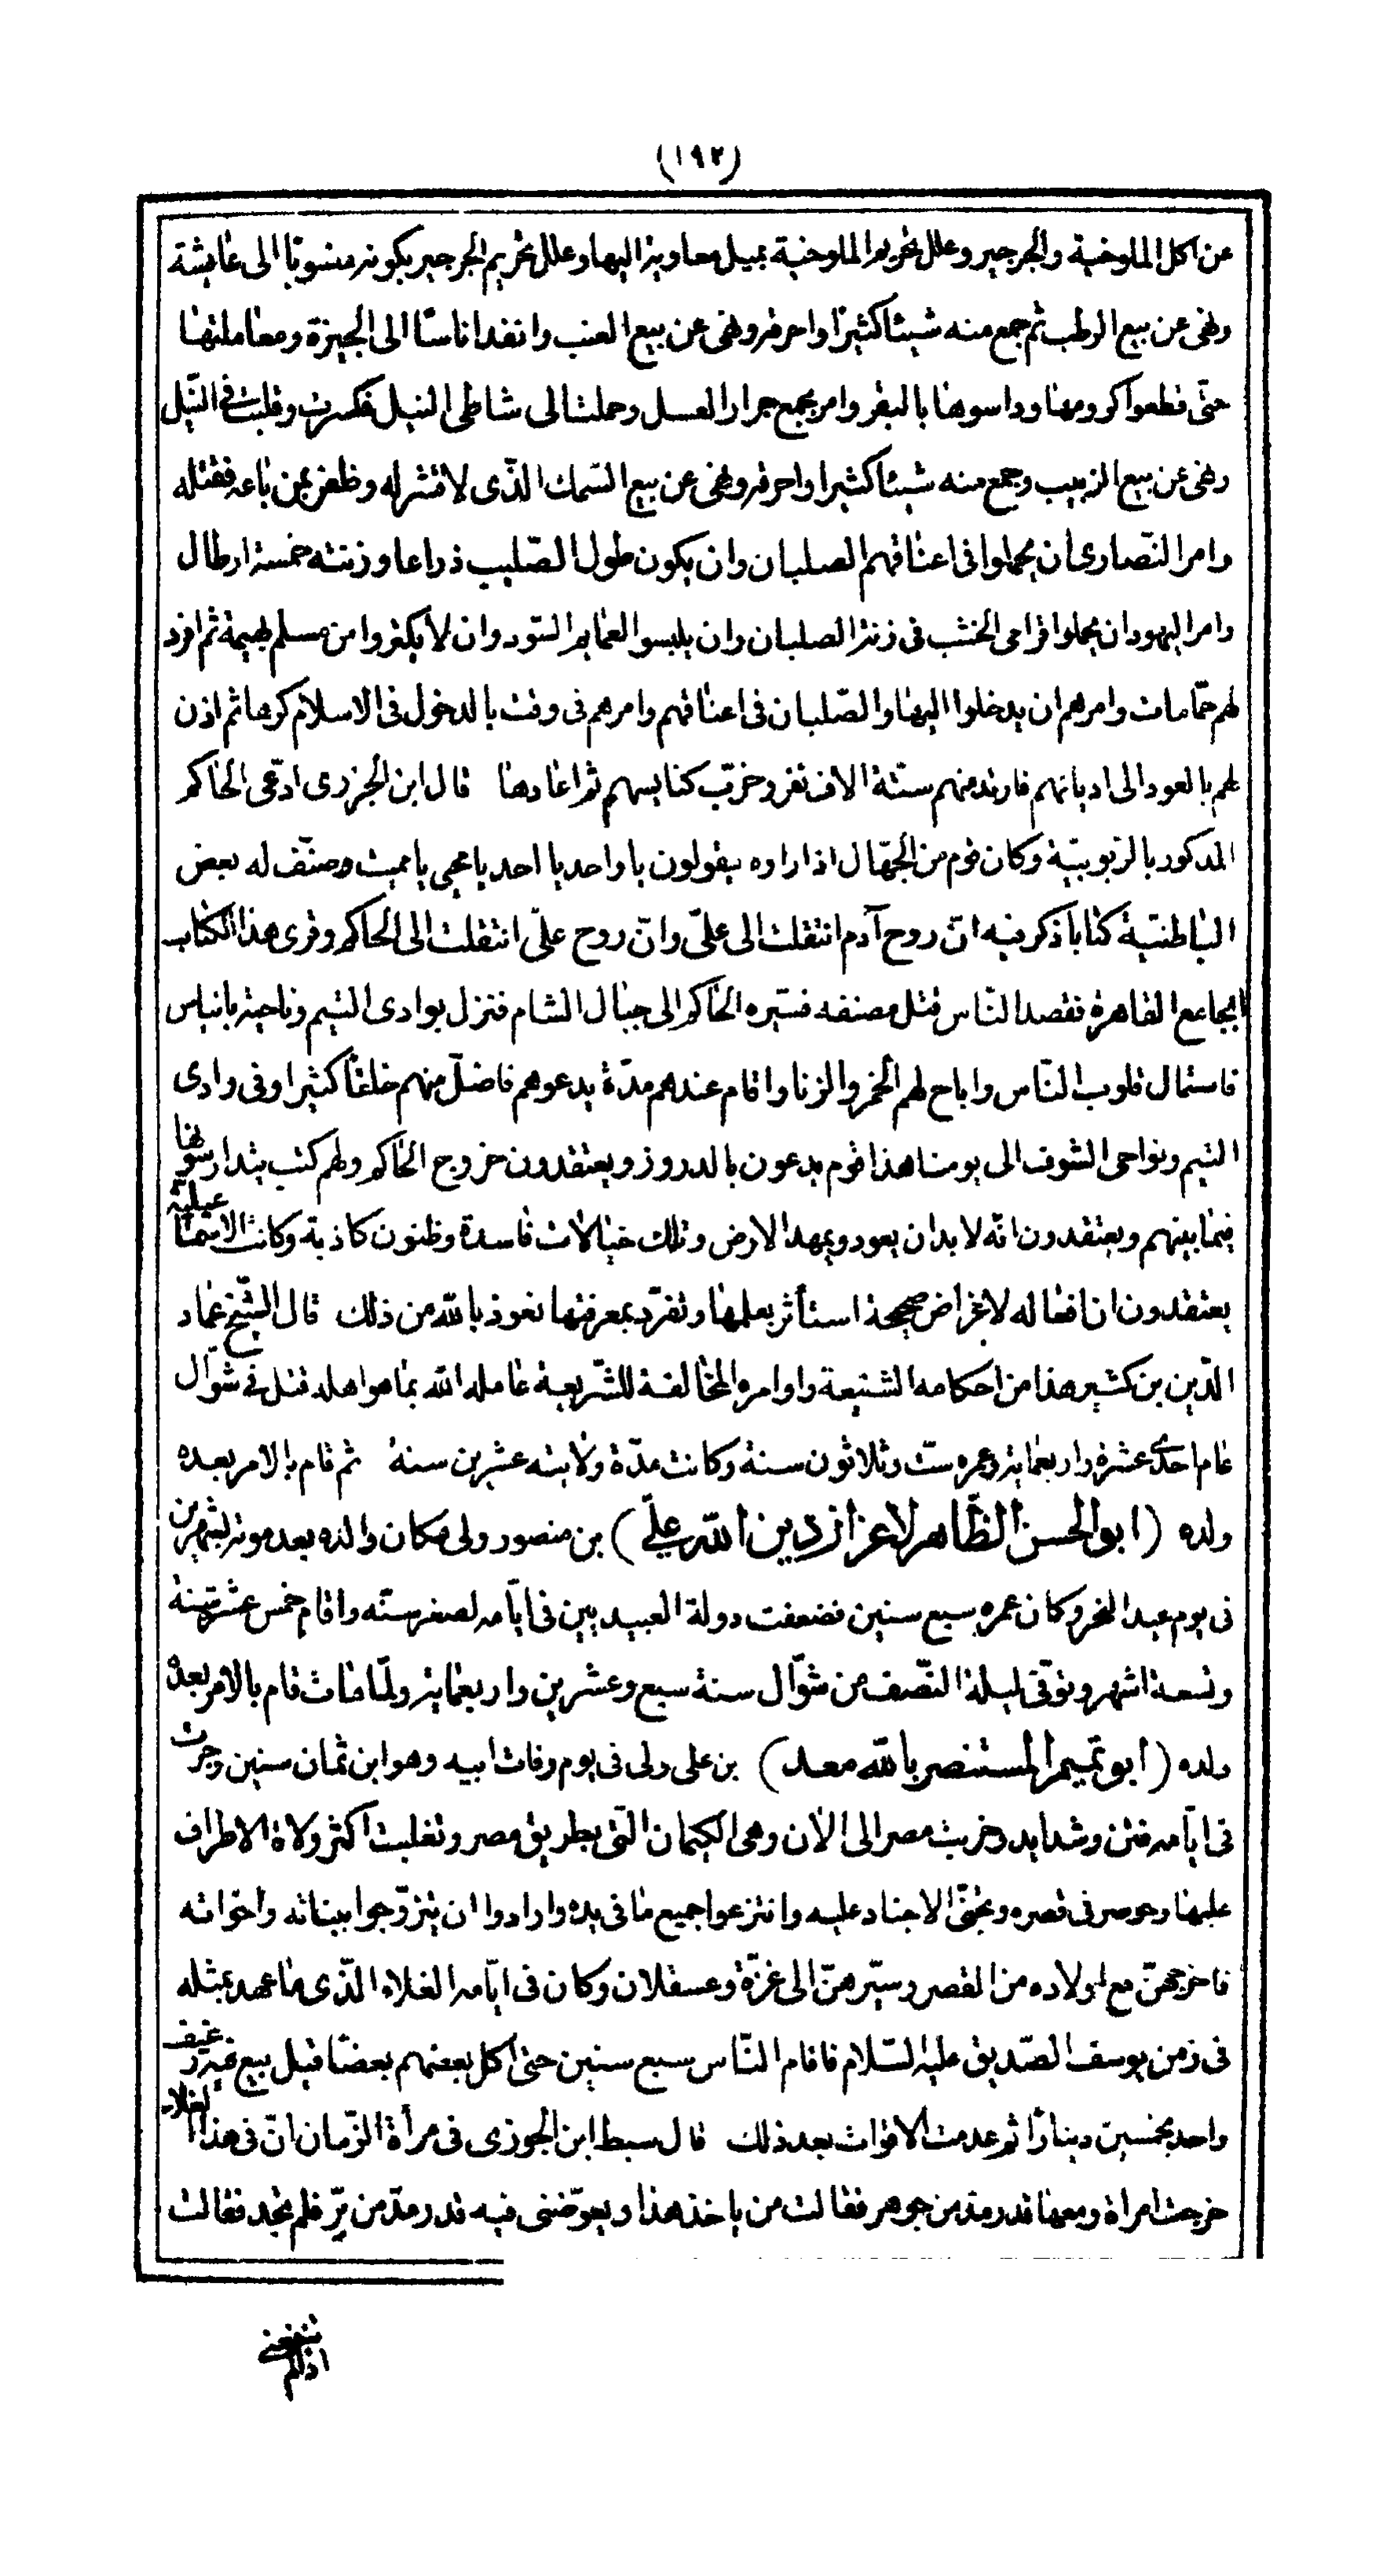 (١٩٢)
عن اكل الملوخية والجرجير وعلل تحريم الملوخية بميل معاوية اليها وعلل تحريم الجرجير بكونه منسوبا الى عايشة
ونهى عن بيع الرطب ثم جمع منه شيئا كثيرا واحرقه ونهى عن بيع العنب وانفد اناسا الى الجيزة ومعاملتها
حتّى قطعوا كرومها وداسوها بالبقر وامر بجمع جرار العسل وحملت الى شاطى النيل فكسرت وقلبت فى النّيل
ونهى عن بيع الزبيب وجمع منه شيئا كثيرا واحرقه ونهى عن بيع السّمك الّذى لا قشر له وظفر بمن باعه فقتله
وامر النّصارى ان يحملوا فى اعناقهم الصلبان وان يكون طول الصّليب ذراعا وزنته خمسة ارطال
وامر اليهود ان يحملوا قرامى الخشب فى زنة الصلبان وان يلبسوا العمايم السّود وان لا يكتروا من مسلم بهيمة ثم افرد
لهم حمّامات وامرهم ان يدخلوا اليها والصّلبان فى اعناقهم وامرهم فى وقت بالدخول فى الاسلام كرها ثم اذن
لهم بالعود الى اديانهم فارتد منهم ستّة الاف نفر وخرّب كنايسهم ثم اعادها قال ابن الجزرى ادّعى الحاكم
المذكور بالربوبيّة وكان قوم من الجهّال اذا راوه يقولون يا واحد يا احد يا محيى يا مميت وصنّف له بعض
الباطنيّة كتابا ذكر فيه انّ روح آدم انتقلت الى علىّ وانّ روح علىّ انتقلت الى الحاكم وقرى هذا الكتاب
بجامع القاهرة فقصد النّاس قتل مصنفه فسيّره الحاكم الى جبال الشام فنزل بوادى التيم وناحية بانياس
فاستمال قلوب النّاس واباح لهم الخمر والزنا واقام عندهم مدّة يدعوهم فاضلّ منهم خلقا كثيرا وفى وادى
التيم ونواحى الشوف الى يومنا هذا قوم يدعون بالدروز ويعتقدون خروج الحاكم ولهم كتب يتدارسونها
فيما بينهم ويعتقدون انّه لا بد ان يعود ويمهد الارض وتلك خيالات فاسدة وظنون كاذبة وكانت الاسماعيلية
يعتقدون ان افعاله لاغراض صحيحة استأثر بعلمها وتفرّد بمعرفتها نعوذ بالله من ذلك قال الشّيخ عماد
الدّين بن كثير هذا من احكامه الشنيعة واوامره المخالفة للشّريعة عامله الله بما هو اهله قتل فى شوّال
عام احدى عشرة واربعماية وعمره ستّ وثلاثون سنة وكانت مدّة ولايته عشرين سنة ثم قام بالامر بعده
ولده (ابو الحسن الظّاهر لاعزاز دين الله علىّ) بن منصور ولى مكان والده بعد موته بشهرين
فى يوم عيد النحر وكان عمره سبع سنين فضعفت دولة العبيديين فى ايّامه لصغر سنّه واقام خمس عشرة سنة
وتسعة اشهر وتوفّى ليلة النّصف من شوّال سنة سبع وعشرين واربعماية ولمّا مات قام بالامر بعده
ولده (ابو تميم المستنصر بالله معد) بن على ولى فى يوم وفات ابيه وهو ابن ثمان سنين وجرت
فى ايّامه فتن وشدايد وخربت مصر الى الان وهى الكيمان الّتى بطريق مصر وتغلبت اكثر ولاة الاطراف
عليها وحوصر فى قصره وتجنّى الاجناد عليه وانتزعوا جميع ما فى يده وارادوا ان يتزوّجوا ببناته واخواته
فاخرجهنّ مع اولاده من القصر وسيّرهنّ الى غزّة وعسقلان وكان فى ايّامه الغلاء الّذى ما عهد بمثله
فى زمن يوسف الصّديق عليه السّلام فاقام النّاس سبع سنين حتى اكل بعضهم بعضا قيل بيع فيه رغيف
واحد بخمسين دينارا ثم عدمت الاقوات بعد ذلك قال سبط ابن الجوزى فى مرأة الزّمان انّ فى هذا الغلاء
خرجت امراة ومعها قدر مد من جوهر فقالت من ياخذ هذا ويعوّضنى فيه قدر مدّ من برّ فلم تجد فقالت
اذا لم
تنفعنى